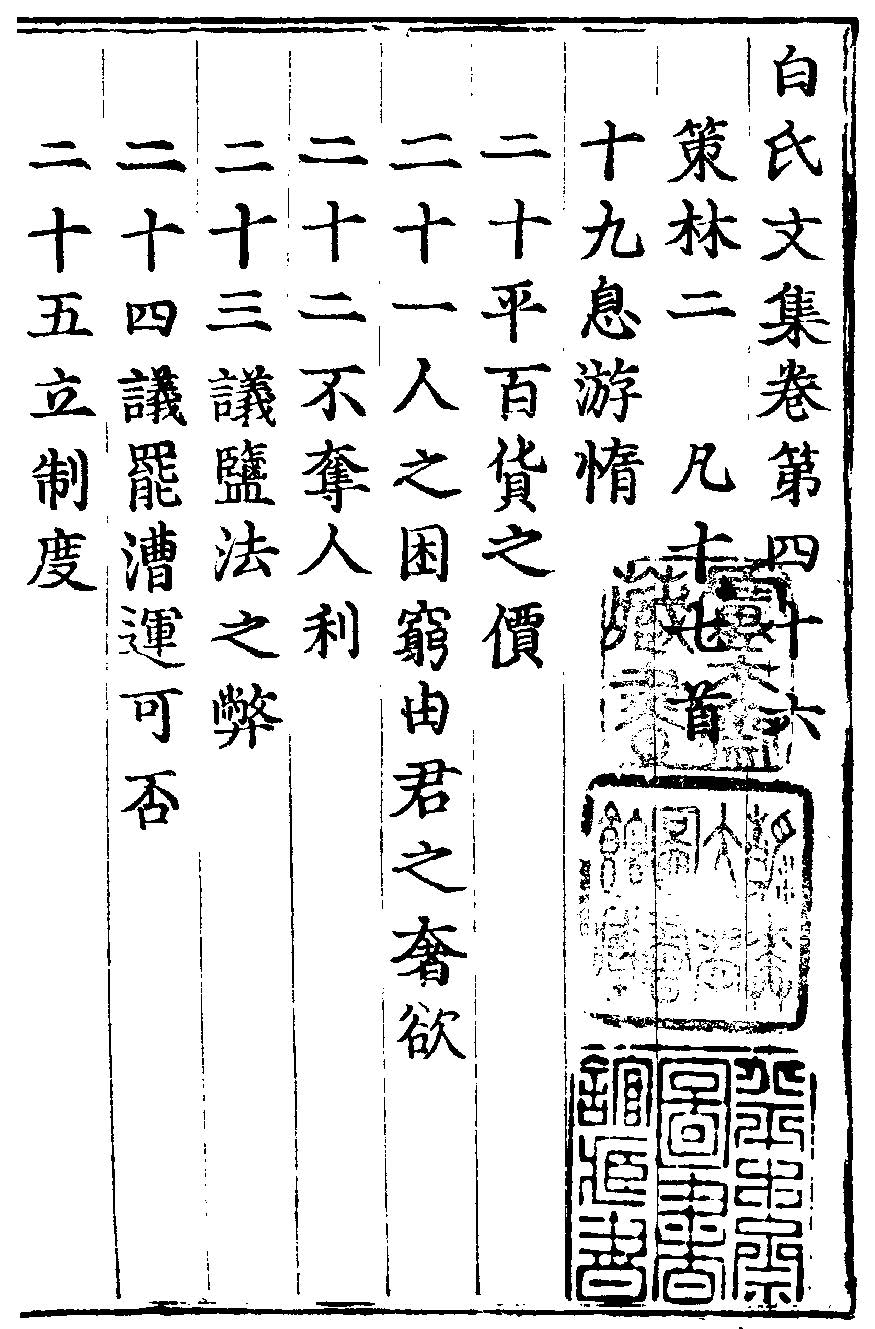 白氏文集卷第四十六
策林二　凡十七首
十九息游惰
二十平百貨之價
二十一人之困窮由君之奢欲
二十二不奪人利
二十三議鹽法之弊
二十四議罷漕運可否
二十五立制度